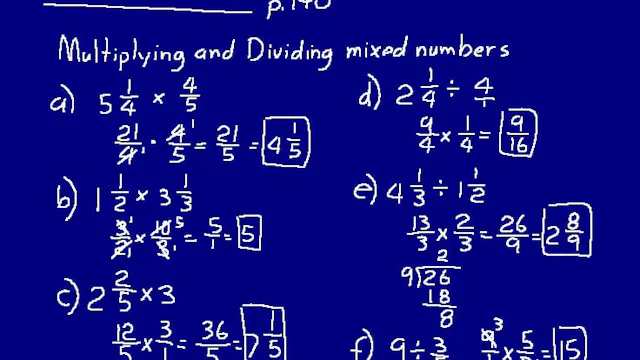 p.140
Multiplying and Dividing mixed numbers
a) 5 1/4 × 4/5
21/4 · 4/5 = 21/5 = 4 1/5
b) 1 1/2 × 3 1/3
3/2 × 10/3 = 5/1 = 5
c) 2 2/5 × 3
12/5 × 3/1 = 36/5 = 7 1/5
d) 2 1/4 ÷ 4/1
9/4 × 1/4 = 9/16
e) 4 1/3 ÷ 1 1/2
13/3 × 2/3 = 26/9 = 2 8/9
2
9 26
18
8
f) 9 ÷ 3/
9/1 × 5/ = 15